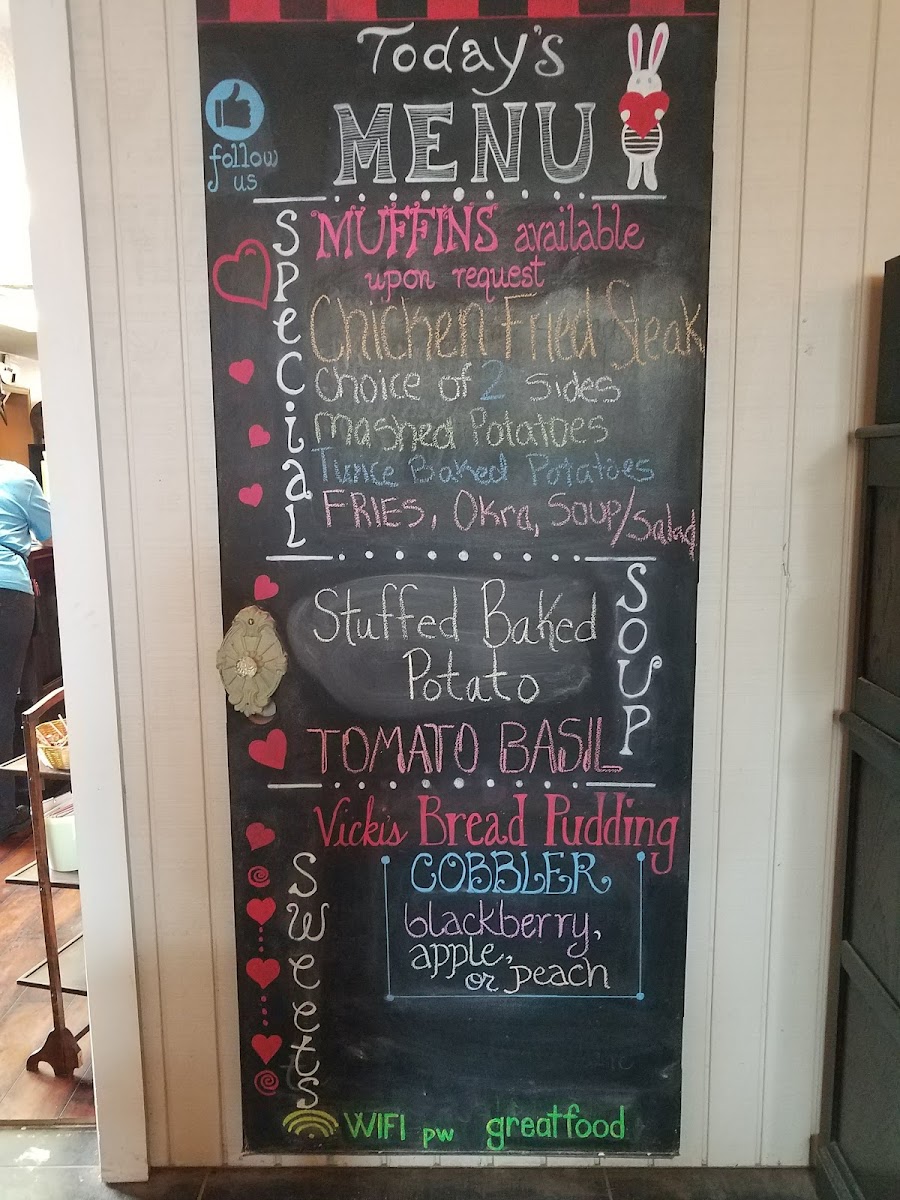 Today's
MENU
follow
us
Special
MUFFINS available
upon request
Chicken Fried Steak
Choice of 2 Sides
Mashed Potatoes
Twice Baked Potatoes
FRIES, Okra, Soup/Salad
SOUP
Stuffed Baked
Potato
TOMATO BASIL
Vicki's Bread Pudding
Sweets
COBBLER
blackberry,
apple,
or peach
WIFI pw greatfood